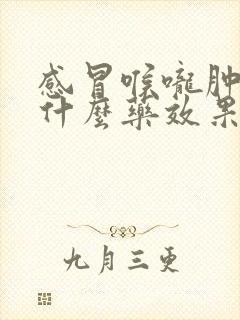 感冒喉嚨肿
什麼藥效果
九月三更